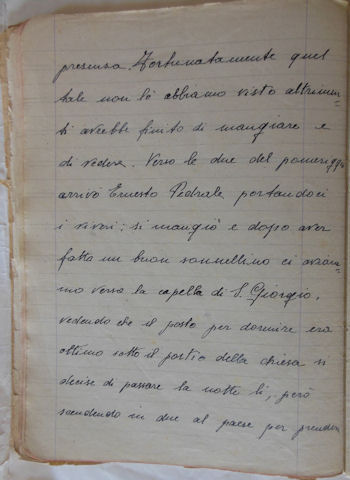 presenza. Fortunatamente quel
tale non lo abbiamo visto altrimen=
ti avrebbe finito di mangiare e
di vedere. Verso le due del pomeriggio
arrivò Ernesto Pedrale portandoci
i viveri: si mangiò e dopo aver
fatta un buon sonnellino ci avvia=
mo verso la capella di S. Giorgio,
vedendo che il posto per dormire era
ottimo sotto il portico della chiesa si
decise di passare la notte lì, però
scendendo in due al paese per prendere